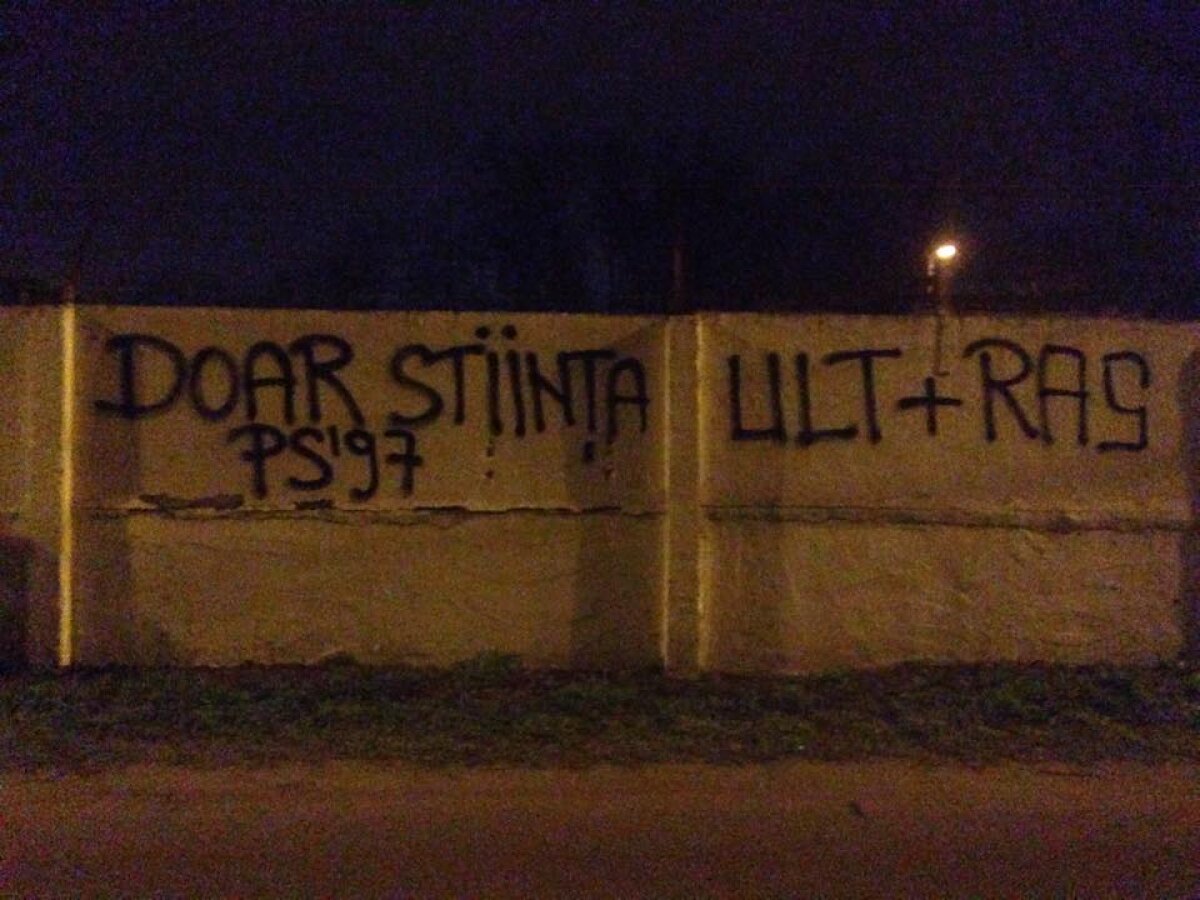 DOAR STIINȚA ULT+RAS
PS'97